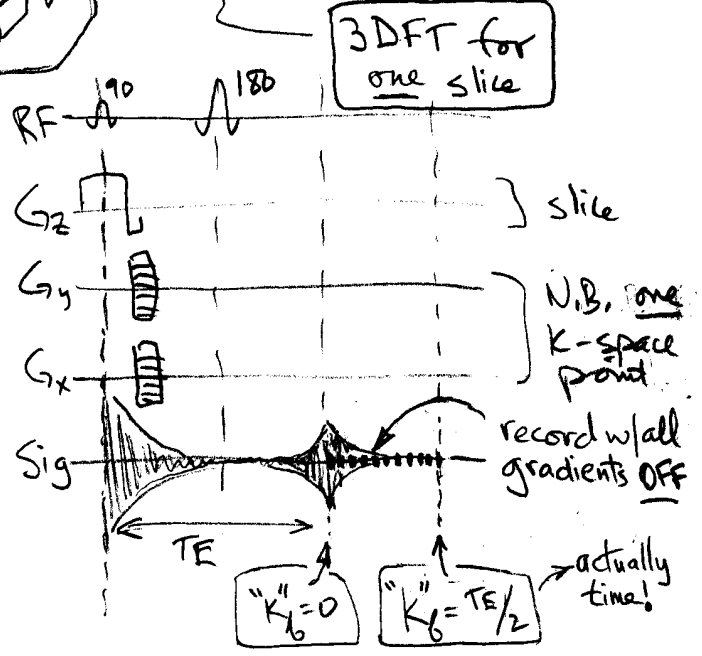 3DFT for
one slice
90
180
RF
Gz
slice
Gy
N.B. one
K-space
point
Gx
record w/all
gradients OFF
Sig
TE
"K"b=0
"K"b=TE/2
actually
time!